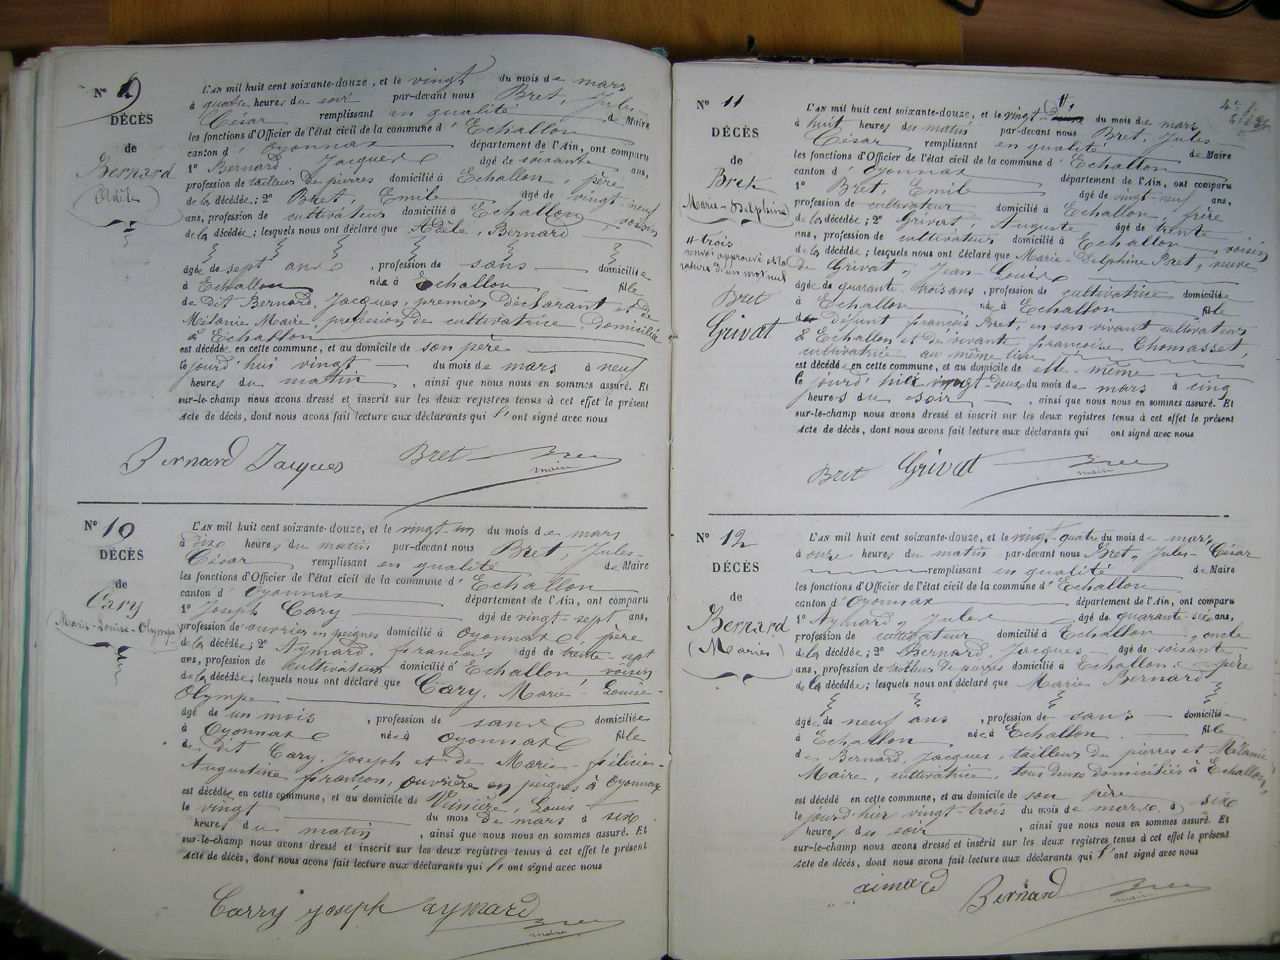 N° 9
DÉCÈS
de
Bernard
Adèle
L'AN mil huit cent soixante-douze, et le vingt du mois de mars
à quatre heures du soir par-devant nous Bret, Jules-
César remplissant en qualité de Maire
les fonctions d'Officier de l'état civil de la commune d'Echallon
canton d'Oyonnax département de l'Ain, ont comparu
1° Bernard, Jacques âgé de soixante ans,
profession de tailleur de pierres domicilié à Echallon, père
de la décédée; 2° Bret, Emile âgé de vingt-neuf
ans, profession de cultivateur domicilié à Echallon voisin
de la décédée; lesquels nous ont déclaré que Adèle, Bernard
âgée de sept ans, profession de sans domiciliée
à Echallon née à Echallon fille
de dit Bernard, Jacques, premier déclarant et de
Mélanie Maire, profession de cultivatrice, domiciliée
à Echallon
est décédée en cette commune, et au domicile de son père
le jourd'hui vingt du mois de mars à neuf
heures du matin, ainsi que nous nous en sommes assuré. Et
sur-le-champ nous avons dressé et inscrit sur les deux registres tenus à cet effet le présent
acte de décès, dont nous avons fait lecture aux déclarants qui l'ont signé avec nous
Bernard Jacques Bret Bret
maire
N° 10
DÉCÈS
de
Cary
Marie-Louise-Olympe
L'AN mil huit cent soixante-douze, et le vingt-un du mois de mars
à dix heures du matin par-devant nous Bret, Jules-
César remplissant en qualité de Maire
les fonctions d'Officier de l'état civil de la commune d'Echallon
canton d'Oyonnax département de l'Ain, ont comparu
1° Joseph Cary âgé de vingt-sept ans,
profession de ouvrier en peignes domicilié à Oyonnax, père
de la décédée; 2° Aymard, françois âgé de trente-sept
ans, profession de cultivateur domicilié à Echallon voisin
de la décédée; lesquels nous ont déclaré que Cary, Marie-Louise-
Olympe
âgé de un mois, profession de sans domiciliée
à Oyonnax née à Oyonnax fille
de dit Cary, Joseph et de Marie-félicie-
Augustine françon, ouvrière en peignes à Oyonnax
est décédée en cette commune, et au domicile de Louis
le vingt du mois de mars à six
heures du matin, ainsi que nous nous en sommes assuré. Et
sur-le-champ nous avons dressé et inscrit sur les deux registres tenus à cet effet le présent
acte de décès, dont nous avons fait lecture aux déclarants qui l'ont signé avec nous
Carry joseph aymard Bret
maire
N° 11
DÉCÈS
de
Bret
Marie-Delphine
# trois
renvoi approuvé et la
rature d'un mot nul
Bret
Grivat
L'AN mil huit cent soixante-douze, et le vingt # du mois de mars
à huit heures du matin par-devant nous Bret, Jules-
César remplissant en qualité de Maire
les fonctions d'Officier de l'état civil de la commune d'Echallon
canton d'Oyonnax département de l'Ain, ont comparu
1° Bret, Emile âgé de vingt-neuf ans,
profession de cultivateur domicilié à Echallon, frère
de la décédée; 2° Grivat, Auguste âgé de trente
ans, profession de cultivateur domicilié à Echallon, voisin
de la décédée; lesquels nous ont déclaré que Marie-Delphine Bret, veuve
de Grivat, Jean-Louis
âgée de quarante trois ans, profession de cultivatrice domiciliée
à Echallon née à Echallon fille
de défunt françois Bret, en son vivant cultivateur
à Echallon et de vivante françoise Thomasset,
cultivatrice au même lieu
est décédée en cette commune, et au domicile de elle-même
le jourd'hier vingt deux du mois de mars à cinq
heures du soir, ainsi que nous nous en sommes assuré. Et
sur-le-champ nous avons dressé et inscrit sur les deux registres tenus à cet effet le présent
acte de décès, dont nous avons fait lecture aux déclarants qui ont signé avec nous
Bret Grivat Bret
maire
N° 12
DÉCÈS
de
Bernard
(Marie)
L'AN mil huit cent soixante-douze, et le vingt-quatre du mois de mars
à onze heures du matin par-devant nous Bret, Jules-César
remplissant en qualité de Maire
les fonctions d'Officier de l'état civil de la commune d'Echallon
canton d'Oyonnax département de l'Ain, ont comparu
1° Aymard, Jules âgé de quarante-six ans,
profession de cultivateur domicilié à Echallon, oncle
de la décédée; 2° Bernard, Jacques âgé de soixante
ans, profession de tailleur de pierres domicilié à Echallon, père
de la décédée; lesquels nous ont déclaré que Marie Bernard
âgée de neuf ans, profession de sans domiciliée
à Echallon, née à Echallon fille
de Bernard, Jacques, tailleur de pierres et Mélanie
Maire, cultivatrice, tous deux domiciliés à Echallon,
est décédé en cette commune, et au domicile de son père
le jourd'hier vingt-trois du mois de mars à six
heures du soir, ainsi que nous nous en sommes assuré. Et
sur-le-champ nous avons dressé et inscrit sur les deux registres tenus à cet effet le présent
acte de décès, dont nous avons fait lecture aux déclarants qui l'ont signé avec nous
aimard Bernard Bret
maire